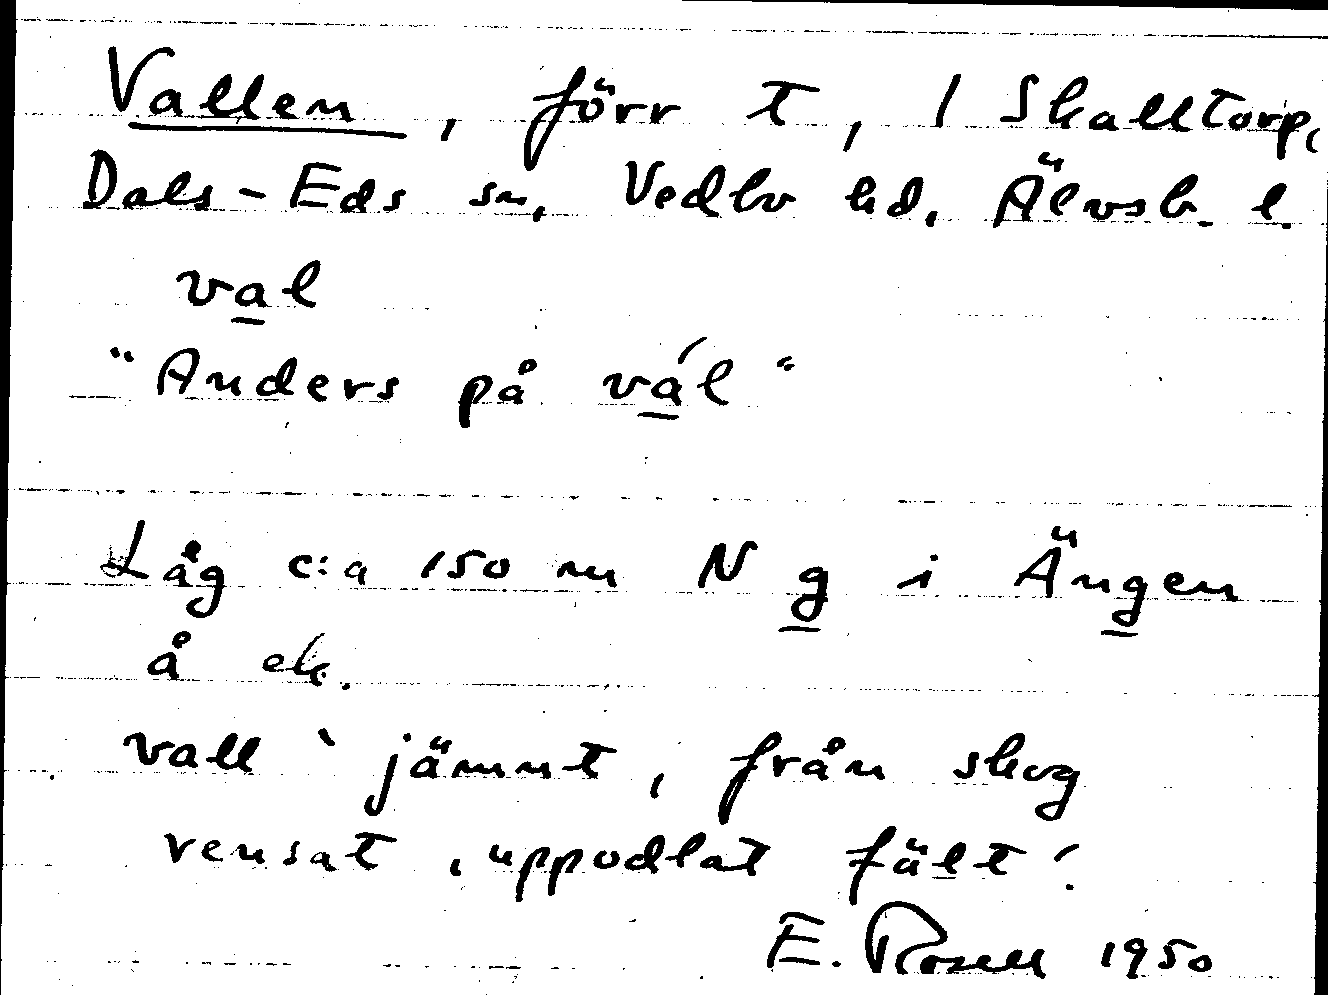 Vallen, förr t, / Skalltorp,
Dals-Eds sn, Vedbo hd, Älvsb. l.
val
"Anders på vál"
Låg c:a 150 m N g i Ängen
å ek.
vall 'jämnt, från skog
rensat, uppodlat fält'.
E. Rosell 1950